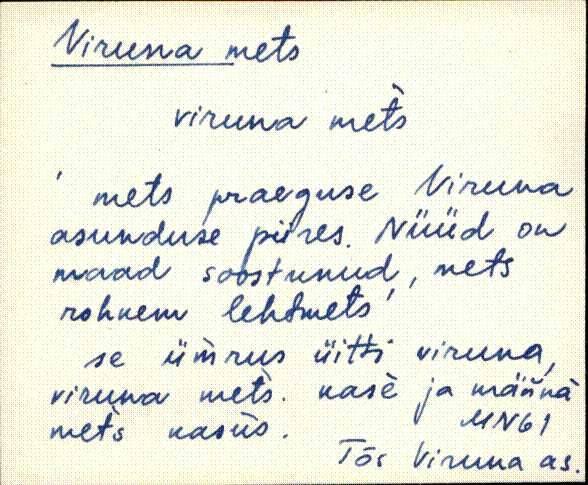 Viruna mets
viruna mets̀
' mets praeguse Viruna
asunduse piires. Nüüd on
maad soostunud, mets
rohkem lehtmets'
se üm̀rus üitti viruna,
viruna mets̀. kasè ja männà
mets̀ kasùs.
MN61
Tõs Viruna as.